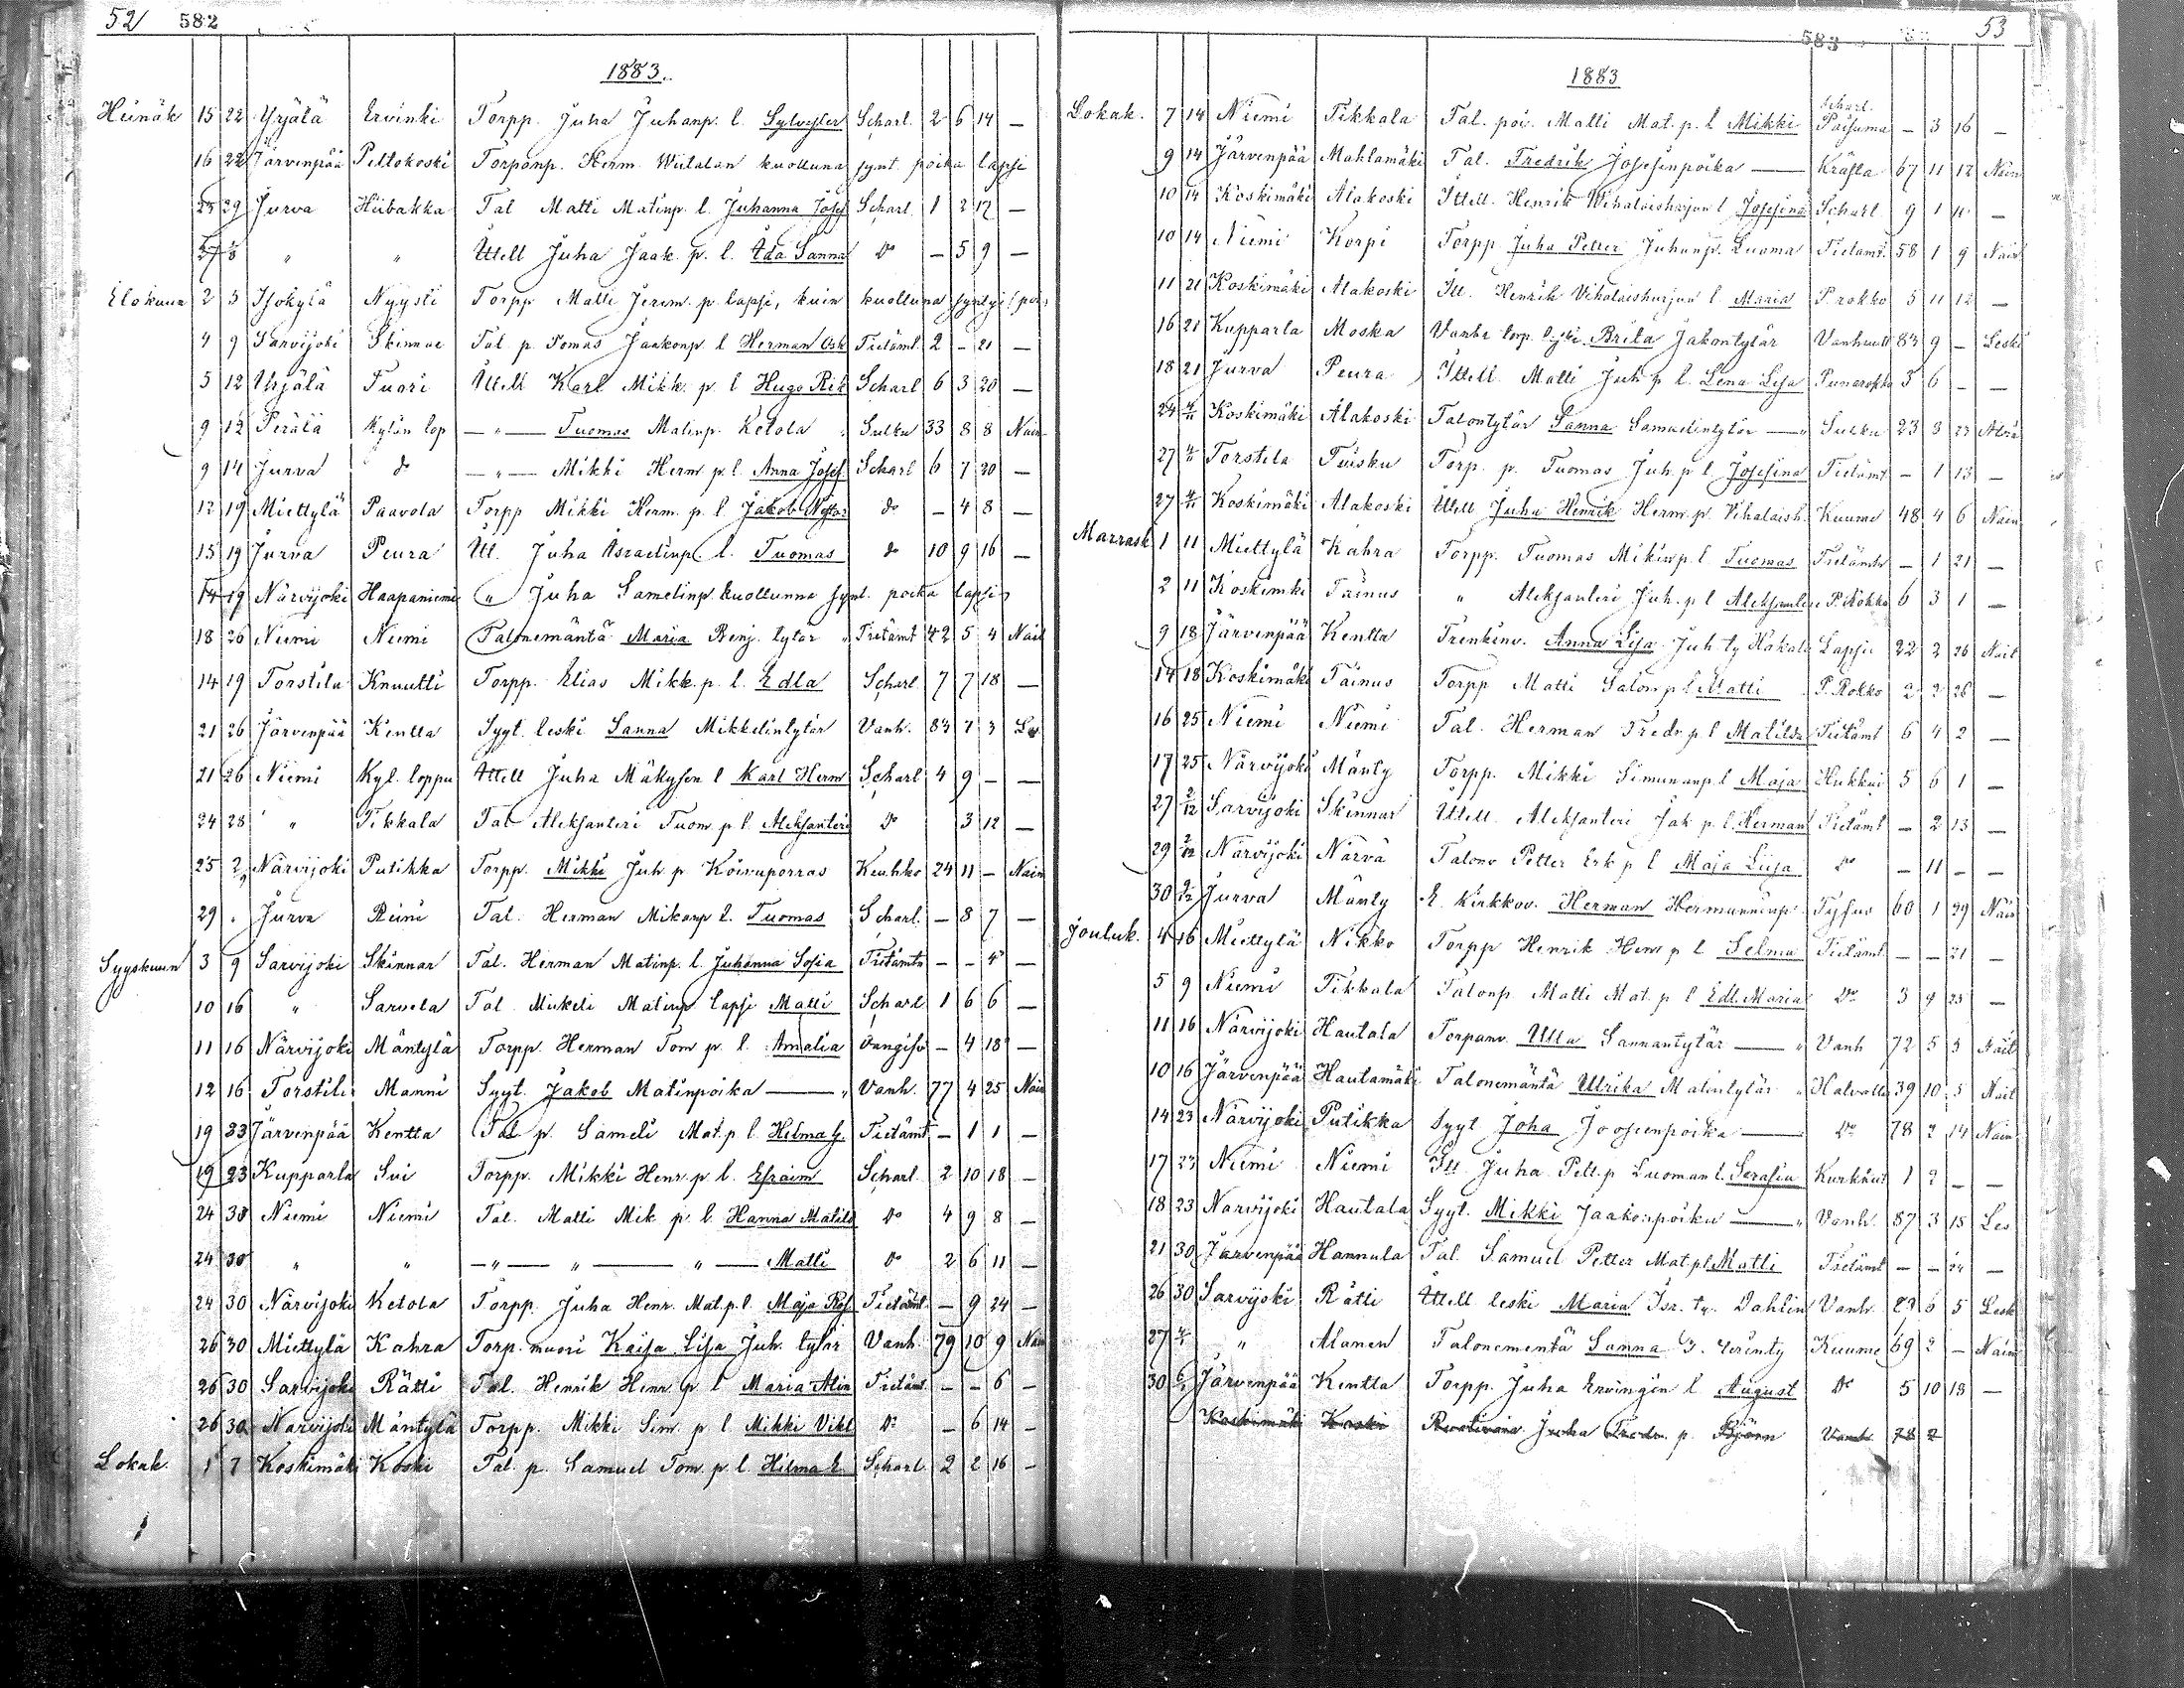 52 582
1883.
Heinäk 15 22 Yrjälä Ervinki Torpp. Juha Juhanp. l. Sylvester Scharl. 2 6 14 —
16 22 Järvenpää Peltokoski Torpanp. Herm. Wiitalan kuolluna synt. poika lapsi
29 Jurva Hiibakka Tal Matti Matinp. l. Juhanna Josef Scharl. 1 2 17 —
" " Ittell Juha Jaak. p. l. Ida Sanna Do — 5 9 —
Elokuun 2 5 Isokylä Nyysti Torpp Matti Jerem. p. lapsi, kuin kuolluna syntyi
4 9 Sarvijoki Skinnar Tal. p. Tomas Jaakonp. l Herman Osk Tietämt. 2 — 21 —
5 12 Yrjälä Tuori Ittell Karl Mikk. p. l Hugo Rik Scharl 6 3 20 —
9 12 Perälä Kylän lop — " — Tuomas Matinp. Ketola Sulku 33 8 8 Nain
9 14 Jurva do — " — Mikki Herm. p. l. Anna Josef. Scharl 6 7 20 —
12 19 Miettylä Paavola Torpp Mikki Herm. p. l. Jakob Nestor do — 4 8 —
15 19 Jurva Peura Itt. Juha Israelinp. l. Tuomas do 10 9 16 —
14 19 Närvijoki Haapaniemi " Juha Samelinp. kuollunna synt. poika lapsi
18 26 Niemi Niemi Talonemäntä Maria Benj. tytär " Tietämt 42 5 4 Nait
14 19 Torstila Knuutti Torpp. Elias Mikk. p. l. Edla Scharl 7 7 18 —
21 26 Järvenpää Kentta Syyt. leski Sanna Mikkelintytär Vanh. 83 7 3 Les
21 26 Niemi Kyl. loppu Ittell Juha Mäkysen l Karl Herm Scharl 4 9 — —
24 28 " Tikkala Tal Aleksanteri Tuom. p. l. Aleksanteri Do 3 12 —
25 2 Närvijoki Putikka Torpp. Mikki Juh. p. Koivuporras Keuhko 24 11 — Nain
29 Jurva Reini Tal. Herman Mikonp l. Tuomas Scharl. — 8 7 —
Syyskuun 3 9 Sarvijoki Skinnar Tal. Herman Matinp. l. Juhanna Sofia Tietämtn — — 4 —
10 16 " Sarvela Tal. Mikeli Matinp lapsi Matti Scharl 1 6 6 —
11 16 Närvijoki Mäntylä Torpp. Herman Tom p. l. Amalia — 4 18 —
12 16 Torstila Manni Syyt. Jakob Matinpoika — " Vanh. 77 4 25 Nain
19 23 Järvenpää Kentta Tal p. Sameli Mat. p l. Hilma G. Tietämt — 1 1 —
19 23 Kupparla Svi Torpp. Mikki Henr. p. l. Efraim Scharl. 2 10 18 —
24 30 Niemi Niemi Tal. Matti Mik p. l. Hanna Matild Do 4 9 8 —
24 30 " " — " — " — " — Matti Do 2 6 11 —
24 30 Närvijoki Ketola Torpp. Juha Henr. Mat. p. l. Maja Ros. Tietämt. — 9 24 —
26 30 Miettylä Kahra Torp. muori Kaisa Lisa Juh. tytär Vanh. 79 10 9 Nain
26 30 Sarvijoki Rätti Tal. Henrik Henr. p l Maria Alin Tietämt. — — 6 —
26 30 Närvijoki Mäntylä Torpp. Mikki Sim. p l. Mikki Vikt Do — 6 14 —
Lokak. 1 7 Koskimäki Koski Tal. p. Samuel Tom. p. l. Hilma E. Scharl. 2 2 16 —
583 53
1883
Lokak. 7 14 Niemi Tikkala Tal. poi. Matti Mat. p. l Mikki Scharl. Paisuma — 3 16 —
9 14 Järvenpää Mahlamäki Tal. Fredrik Josefinpoika — Kräfta 67 11 12 Nain
10 14 Koskimäki Alakoski Ittell. Henrik Wihalaisharjun l Josefina Scharl 9 1 11 —
10 14 Niemi Korpi Torpp Juha Petter Juhanp. Luoma Tietämt. 58 1 9 Nain
11 21 Koskimäki Alakoski Itt. Henrik Vihalaisharjun l. Maria P. rokko 5 11 12 —
16 21 Kupparla Moska Vanha torp. leski Brita Jakontytär Vanhuutt 83 9 — Leski
18 21 Jurva Peura Ittell. Matti Juh p l. Lena Lisa Punarokko 3 6 — —
24 4/11 Koskimäki Alakoski Talontytär Sanna Samuelintytär — " Sulku 23 3 27
27 4/11 Torstila Tuisku Torp. p. Tuomas Juh. p l Josefina Tietämt — 1 13 —
27 4/11 Koskimäki Alakoski Ittell Juha Henrik Herm. p. Vihalaish. Kuume 48 4 6 Nain
Marrask 1 11 Miettylä Kahra Torpp. Tuomas Mikinp. l. Tuomas Tietämtn — 1 21 —
2 11 Koskimki Tainus " Aleksanteri Juh. p l Aleksanteri P. Rokko 6 3 1 —
9 18 Järvenpää Kentta Trenkinv. Anna Lisa Juh ty Hakala Lapsi 22 2 26 Nait
14 18 Koskimäki Tainus Torpp Matti Salom p l Matti P. Rokko 2 2 26 —
16 25 Niemi Niemi Tal. Herman Fredr. p l Matilda Tietämt 6 4 2 —
17 25 Närvijoki Mänty Torpp. Mikki Simunanp. l Maja Hukkui 5 6 1 —
27 2/12 Sarvijoki Skinnar Ittell. Aleksanteri Jak p. l. Herman Tietämt — 2 13 —
29 2/12 Närvijoki Närvä Talonp Petter Erk p l Maja Liisa Do — 11 — —
30 Jurva Mänty E. Kirkkov. Herman Hermanninp. Tyfus 60 1 29 Nain
Jouluk. 4 16 Miettylä Nikko Torpp Henrik Henr p l Selma Tietämt — — 21 —
5 9 Niemi Tikkala Talonp. Matti Mat. p l Edl. Maria Do 3 9 23 —
11 16 Närvijoki Hautala Torpanv. Ulla Sannantytär — " Vanh 72 5 3 Nait
10 16 Järvenpää Hautamäki Talonemäntä Ulrika Matintytär " Halvattu 39 10 5 Nait
14 23 Närvijoki Putikka Syyt Joha Joosepinpoika — Do 78 2 14 Nain
17 23 Niemi Niemi Itt. Juha Pett. p Luoman l. Serafia Kurkkut 1 2 — —
18 23 Närvijoki Hautala Syyt. Mikki Jaakonpoika — " Vanh. 87 3 15 Les
21 30 Järvenpää Hannula Tal. Samuel Petter Mat. p l Matti Tietämt — — 24 —
26 30 Sarvijoki Rätti Ittell leski Maria Isr. ty. Dahlin Vanh. 83 6 5 Lesk
27 " Alanen Talonementä Sanna Kuume 69 2 — Nain
30 6/1 Järvenpää Kentta Torpp. Juha Ervingin l August Do 5 10 18 —
Koskimäki Koski Juha Fredr. p. Björn Vanh. 78 2